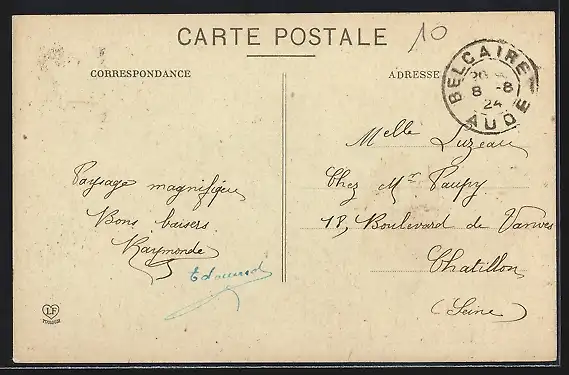 CARTE POSTALE
10
CORRESPONDANCE
ADRESSE
BELCAIRE
20
8 -8
24
AUDE
Paysage magnifique
Bons baisers
Raymonde
Edouard
Melle Luzeau
Chez Mr Paupy
18, Boulevard de Vanves
Chatillon
(Seine)
LF
TOULOUSE